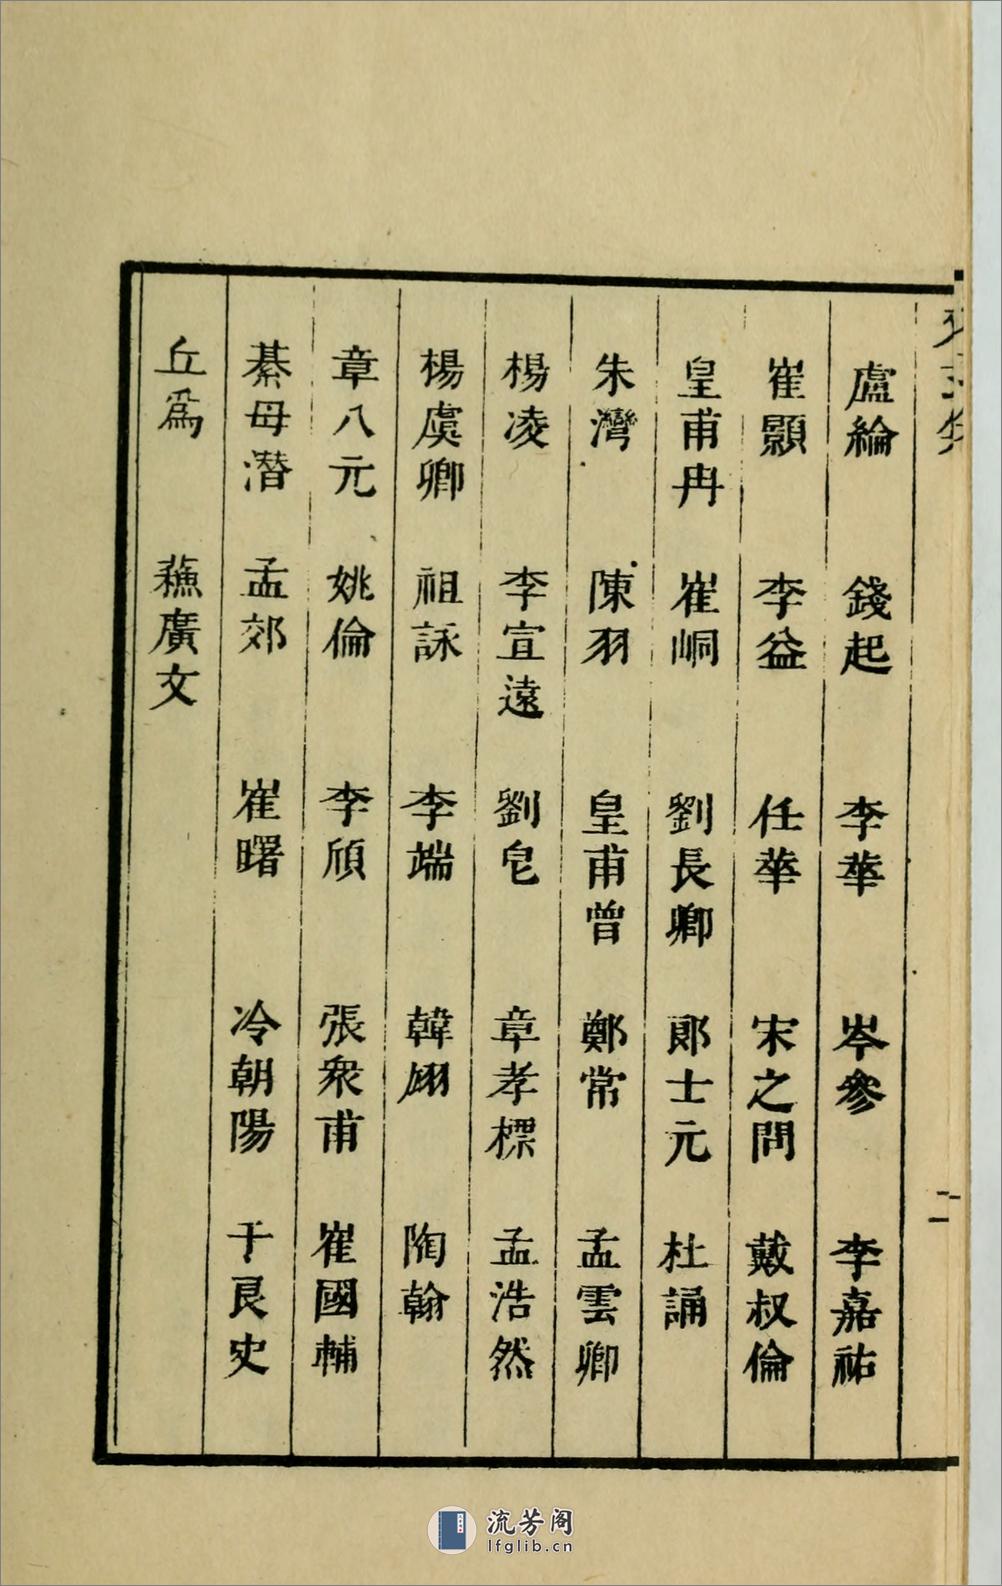 盧綸 錢起 李華 岑參 李嘉祐
崔顥 李益 任華 宋之問 戴叔倫
皇甫冉 崔峒 劉長卿 郎士元 杜誦
朱灣 陳羽 皇甫曾 鄭常 孟雲卿
楊凌 李宣遠 劉皂 章孝標 孟浩然
楊虞卿 祖詠 李端 韓翃 陶翰
章八元 姚倫 李頎 張衆甫 崔國輔
綦母潛 孟郊 崔曙 冷朝陽 于良史
丘爲 蘓廣文
二
流芳阁
lfglib.cn